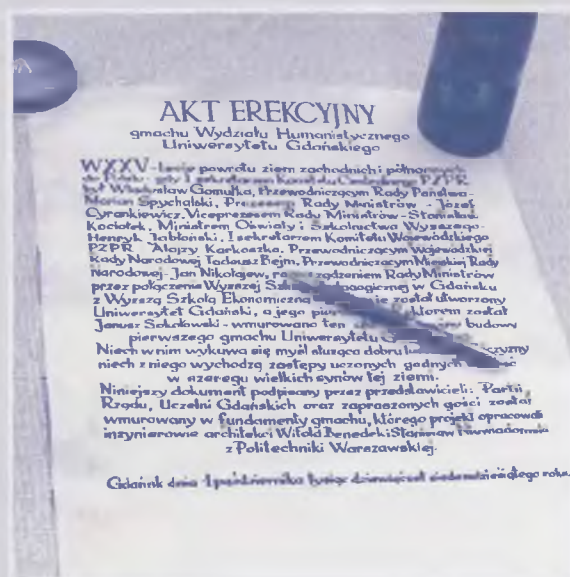 AKT EREKCYJNY
gmachu Wydziału Humanistycznego
Uniwersytetu Gdańskiego
W XXV-lecie powrotu ziem zachodnich i północnych
do Polski - gdy I sekretarzem Komitetu PZPR
był Władysław Gomułka, Przewodniczącym Rady Państwa-
Marian Spychalski, Prezesem Rady Ministrów - Józef
Cyrankiewicz, Viceprezesem Rady Ministrów - Stanisław
Kociołek, Ministrem Oświaty i Szkolnictwa Wyższego-
Henryk Jabłoński, I sekretarzem Komitetu Wojewódzkiego
PZPR - Alojzy Karkoszka, Przewodniczącym Wojewódzkiej
Rady Narodowej Tadeusz Bejm, Przewodniczącym Miejskiej Rady
Narodowej - Jan Nikołajew, rozporządzeniem Rady Ministrów
przez połączenie Wyższej Szkoły Pedagogicznej w Gdańsku
z Wyższą Szkołą Ekonomiczną został utworzony
Uniwersytet Gdański, a jego rektorem został
Janusz Sokołowski - wmurowano ten budowy
pierwszego gmachu Uniwersytetu
Niech w nim wykuwa się myśl służąca dobru
niech z niego wychodzą zastępy uczonych godnych
w szeregu wielkich synów tej ziemi.
Niniejszy dokument podpisany przez przedstawicieli: Partii,
Rządu, Uczelni Gdańskich oraz zaproszonych gości został
wmurowany w fundamenty gmachu, którego projekt opracowali
inżynierowie architekci Witold Benedek i Stanisław Niewiadomski
z Politechniki Warszawskiej.
Gdańsk dnia 1 października tysiąc dziewięćset siedemdziesiątego roku.